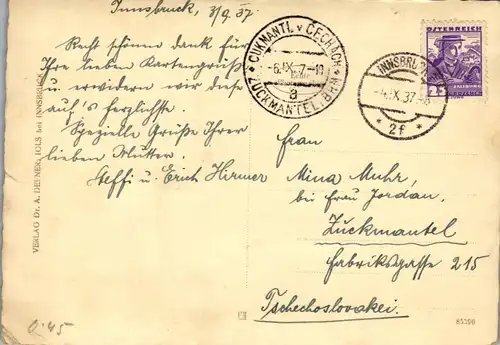 Innsbruck, 3/9.37.
Recht schönen dank für
Ihre lieben Kartengrüße
u. erwidern wir diese
auf's herzlichste.
Spezielle Grüße Ihrer
lieben Mutter.
Steffi u. Erich Hirmer
CUKMANTL v ČECHÁCH
-6.IX.37-10
a
ZUCKMANTEL, BÖHM.
INNSBRUCK
-4.IX.37-8
* 2f *
ÖSTERREICH
25
Frau
Mina Muhr,
bei Frau Jordan,
Zuckmantel
Fabriksgasse 215
Tschechoslovakei.
VERLAG Dr. A. DEFNER, IGLS bei INNSBRUCK
0.45